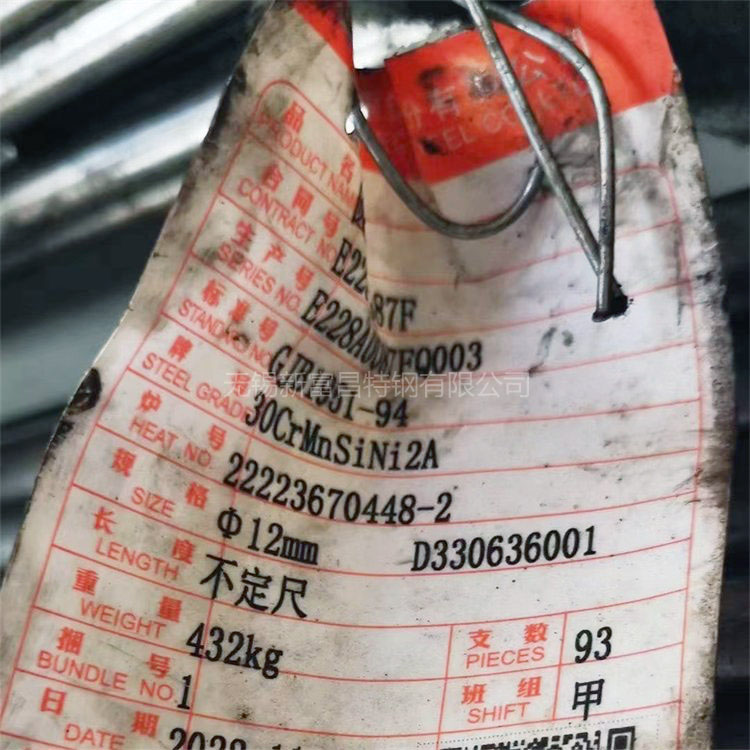 有 公
EEL CO
品 名
PRODUCT NAM
合 同 号
CONTRACT NO.
E22 87F
生 产 号
SERIES NO.
E228A 0003
标 准 号
STANDA NO
-94
牌
STEEL GRADE
30CrMnSiNi2A
炉 号
HEAT NO.
22223670448-2
规 格
SIZE
Φ12mm D330636001
长 度
LENGTH
不定尺
重 量
WEIGHT
432kg
支 数
PIECES
93
捆 号
BUNDLE NO.
1
班 组
SHIFT
甲
日 期
DATE
无锡新富昌特钢有限公司